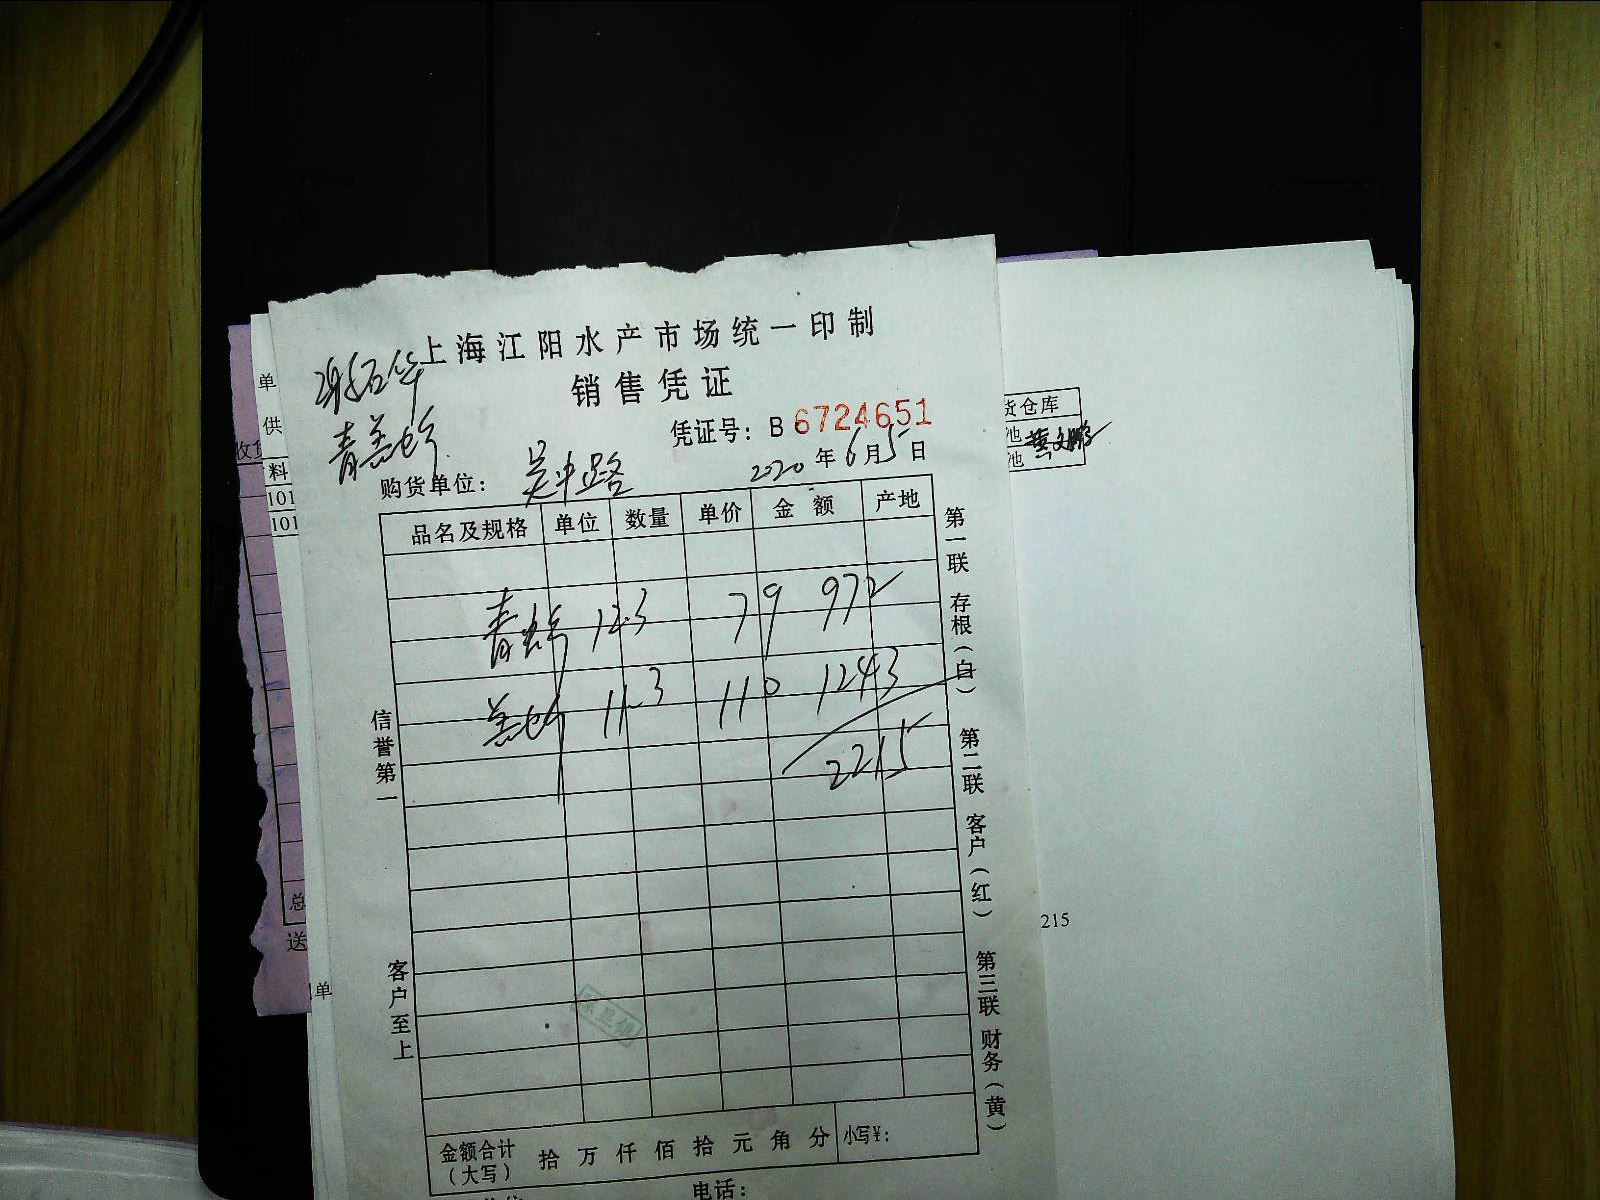 上海江阳水产市场统一印制
销售凭证
凭证号：B 6724651
购货单位： 吴中路
2020 年 6 月 5 日
品名及规格 单位 数量 单价 金额 产地
青虾 12.3 79 972
羔虾 11.3 110 1243
2215
金额合计（大写） 拾 万 仟 佰 拾 元 角 分 小写¥：
电话：
信誉第一
客户至上
第一联 存根（白）
第二联 客户（红）
第三联 财务（黄）
单
供
料
101
101
总
送
单
货仓库
池
池
215